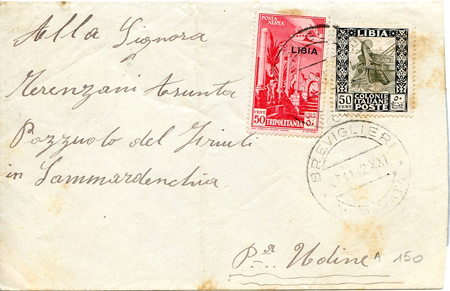 Alla Signora
Terenzani Assunta
Pozzuolo del Friuli
in Sammardenchia
Pa Udine
A 150
POSTA AEREA
LIBIA
50 CENT
TRIPOLITANIA
LIBIA
50 CENT
COLONIE ITALIANE
POSTE
BREVIGLIERI